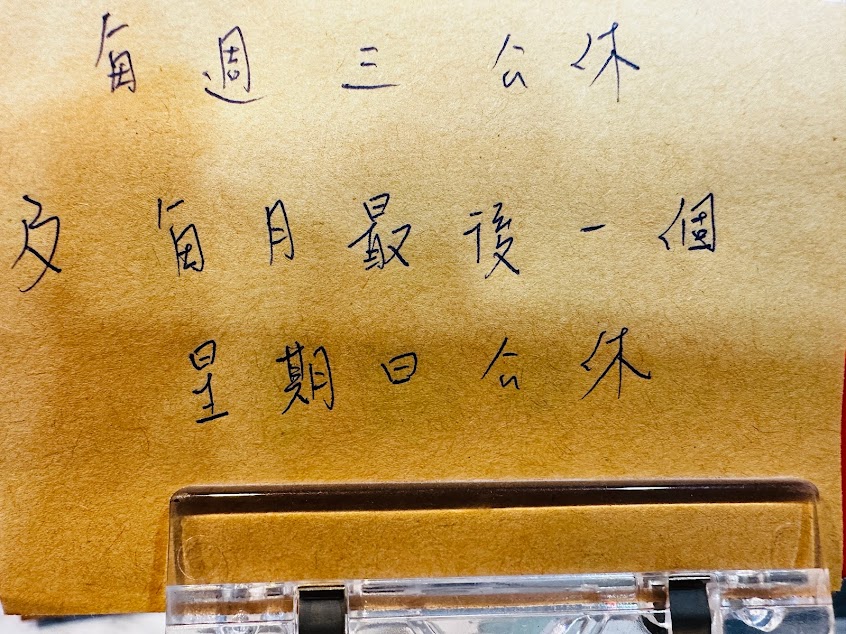 每週三公休
及每月最後一個
星期日公休